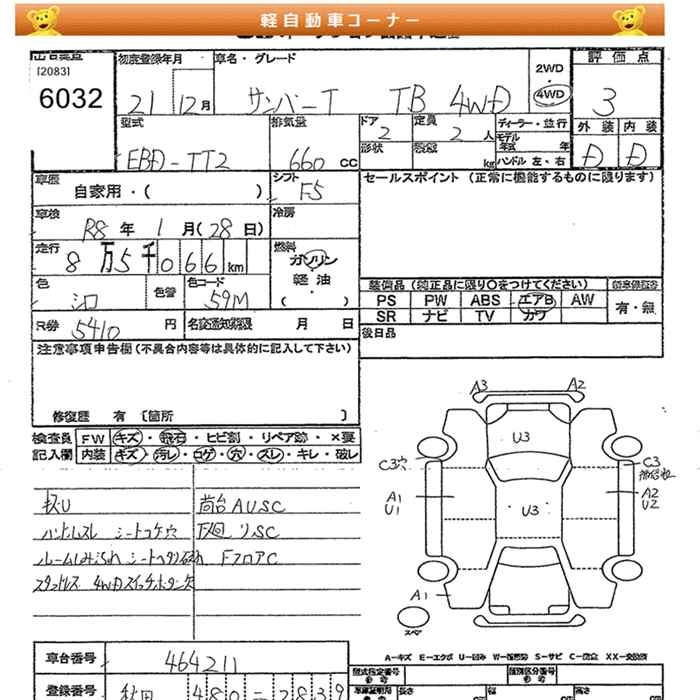 軽自動車コーナー
[2083]
6032
初度登録年月
21 12月
車名・グレード
サンバーT TB 4WD
2WD
4WD
評価点
3
外装 内装
D D
型式
EBD-TT2
排気量
660 cc
ドア
2
定員
2 人
形状
kg
ディーラー・並行
モデル年式 年
ハンドル 左・右
車歴
自家用・( )
シフト
F5
セールスポイント(正常に機能するものに限ります)
車検
R8 年 1 月(28 日)
冷房
走行
8万5千066km
燃料
ガソリン
軽油
・( )
色
シロ
色替
色コード
59M
R券
5410 円
名変通知期限 月 日
装備品(純正品に限り○をつけてください)
PS PW ABS エアB AW
SR ナビ TV カワ
有・無
後日品
注意事項申告欄(不具合内容等は具体的に記入して下さい)
修復歴 有 〔箇所 〕
検査員記入欄
FW キズ・飛石・ヒビ割・リペア跡・×要
内装 キズ・汚レ・コゲ・穴・スレ・キレ・破レ
キズU
ハンドルスレ シートコゲ穴
スタッドレス 4WDスイッチボタン欠
荷台AUSC
下廻りSC
FフロアC
A3 A2
U3
C3穴
C3
A1
U1
U3
A2
U2
A1
スペア
A-キズ E-エクボ U-凹み W-補修跡 S-サビ C-腐食 XX-交換済
車台番号
464211
登録番号
秋田 480-2839
型式指定番号
類別区分番号
長さ 幅 高さ